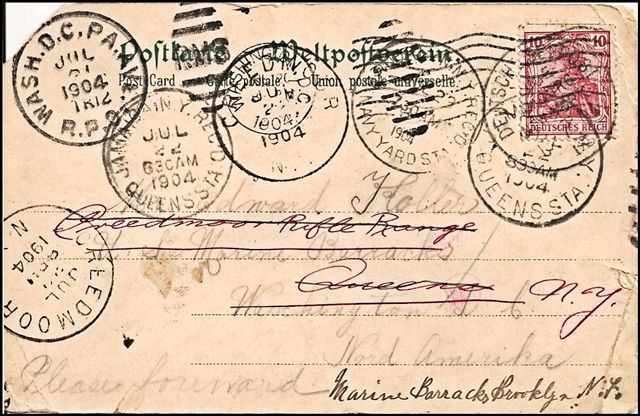 Postkarte Weltpostverein
Post Card Carte postale. Union postale universelle.
WASH. D.C. P.A.
JUL
21
1904
TR12
R.P.O.
JAMAICA IN Y REC'D
JUL
22
630AM
1904
QUEENS STA.
1904.
1904
N.
N.Y. YARD STA.
1904
10 10
DEUTSCHES REICH
JUL
22
830AM
1904
QUEENS STA.
CREEDMOOR
JUL
1904
N
Edward Koller
Creedmoor Rifle Range
U. S. Marine Barracks
Queens N.Y.
Washington D. C.
Nord Amerika
Please forward
Marine Barracks, Brooklyn. N.Y.